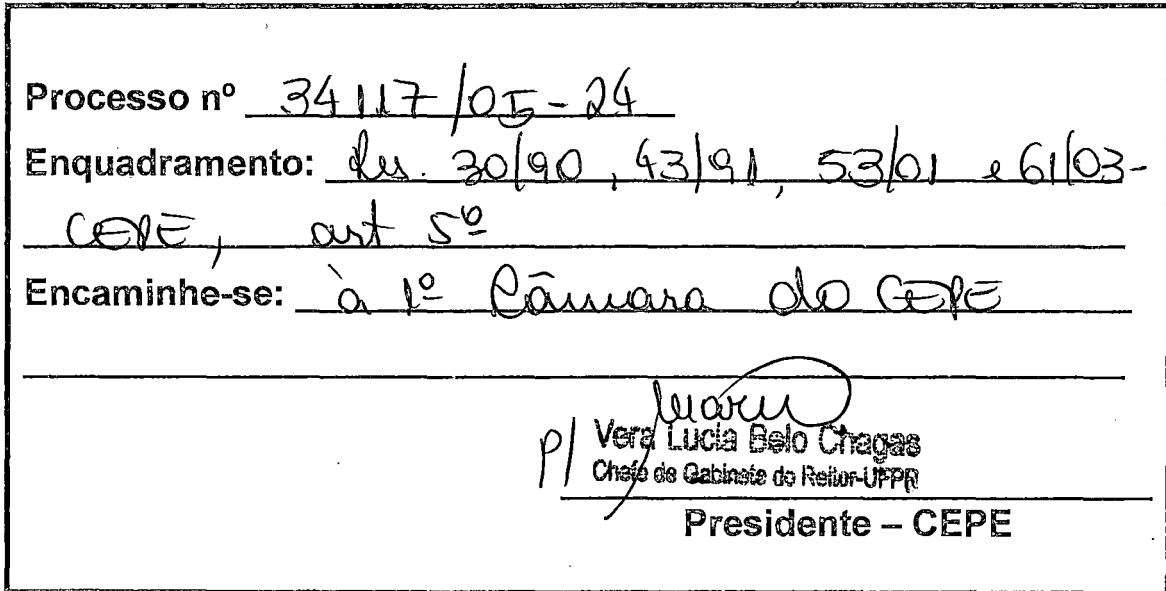 Processo nº 34117/05-24
Enquadramento: Res. 30/90, 43/91, 53/01 e 61/03-
CEPE, art 5º
Encaminhe-se: à 1ª Câmara do CEPE
p/ Vera Lucia Belo Chagas
Chefe de Gabinete do Reitor-UFPR
Presidente – CEPE